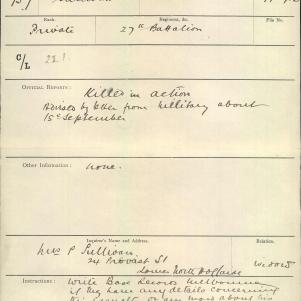 Rank.
Regiment, &c.
File No.
Private
27th Battalion
C/L 221
OFFICIAL REPORTS: Killed in action
Advised by letter from Military about
15th September
Other Information: none.
Inquirer's Name and Address.
Relation
Mrs P Sullivan
24 Provost St
Lower North Adelaide
Widow
Instructions: Write Base Records Melbourne
if they have any details concerning